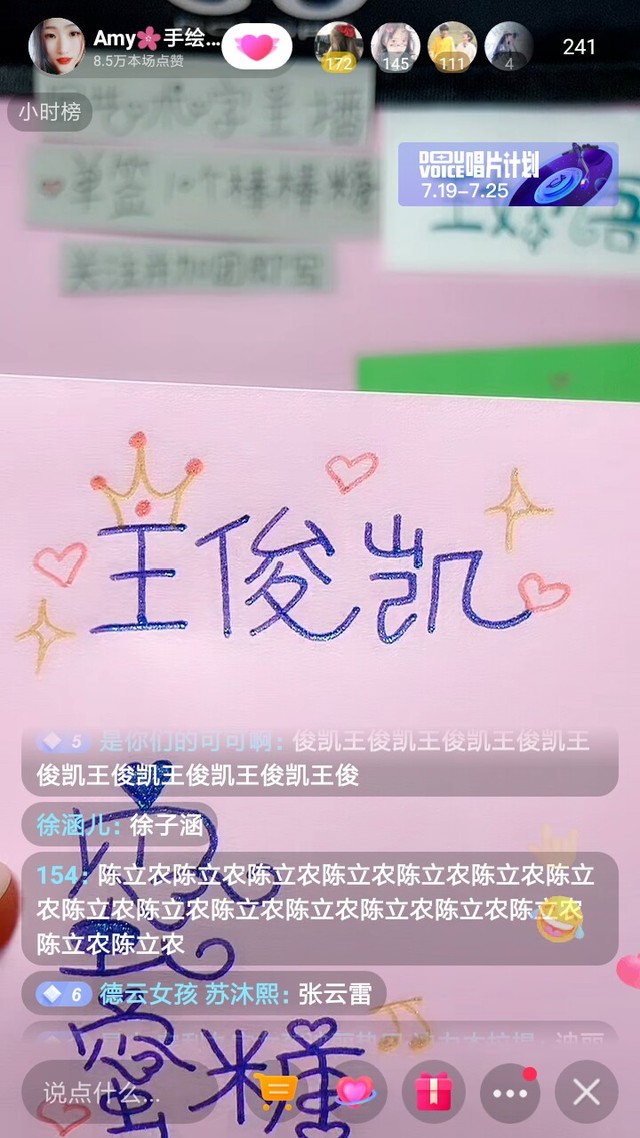 Amy🌸手绘...
8.5万本场点赞
172
145
111
4
241
小时榜
艺术字主播
单签1个棒棒糖
关注并加团即写
VOICE唱片计划
7.19-7.25
王俊凯
5 是你们的可可啊：俊凯王俊凯王俊凯王俊凯王
俊凯王俊凯王俊凯王俊凯王俊
徐涵儿：徐子涵
154：陈立农陈立农陈立农陈立农陈立农陈立农陈立
农陈立农陈立农陈立农陈立农陈立农陈立农陈立农
陈立农陈立农
6 德云女孩 苏沐熙：张云雷
蜜糖
说点什么...